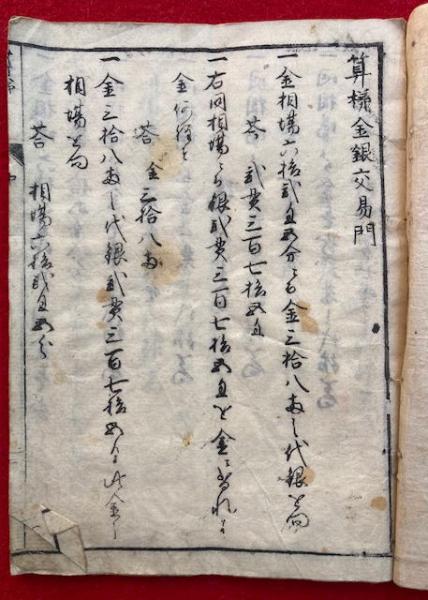 算様金銀交易門
一金相場六拾弐匁五分ニ而金三拾八両之代銀を問
答 弐貫三百七拾五匁
一右同相場ニ而銀弐貫三百七拾五匁を金ニ
金何程と
答 金三拾八両
一金三拾八両之代銀弐貫三百七拾五匁ニ此金
相場を問
答 相場六拾弐匁五分